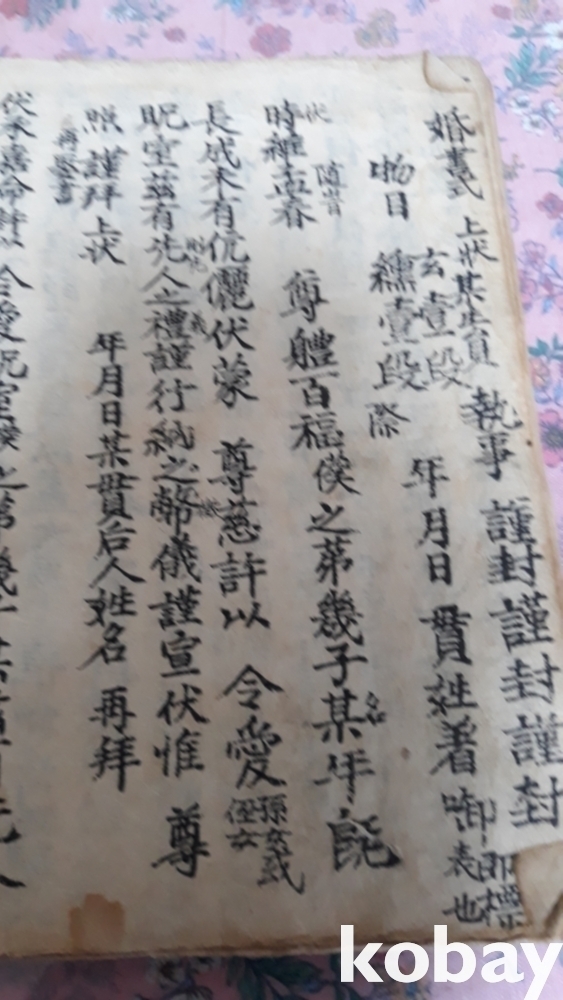 婚書式 上狀某生員 執事 謹封謹封謹封
玄壹段 年月日 貫姓着啣 即標表也
物目 纁壹段 際
伏
時維孟春 隨時 尊體百福僕之第幾子某名年旣
長成未有伉儷伏蒙 尊慈許以 令愛 孫女或侄女
貺室茲有先人之禮謹行納之幣儀謹宣伏惟 尊
照 謹拜 上狀 年月日某貫后人姓名 再拜
伏承嘉命許以令愛貺室僕之第幾子某
kobay